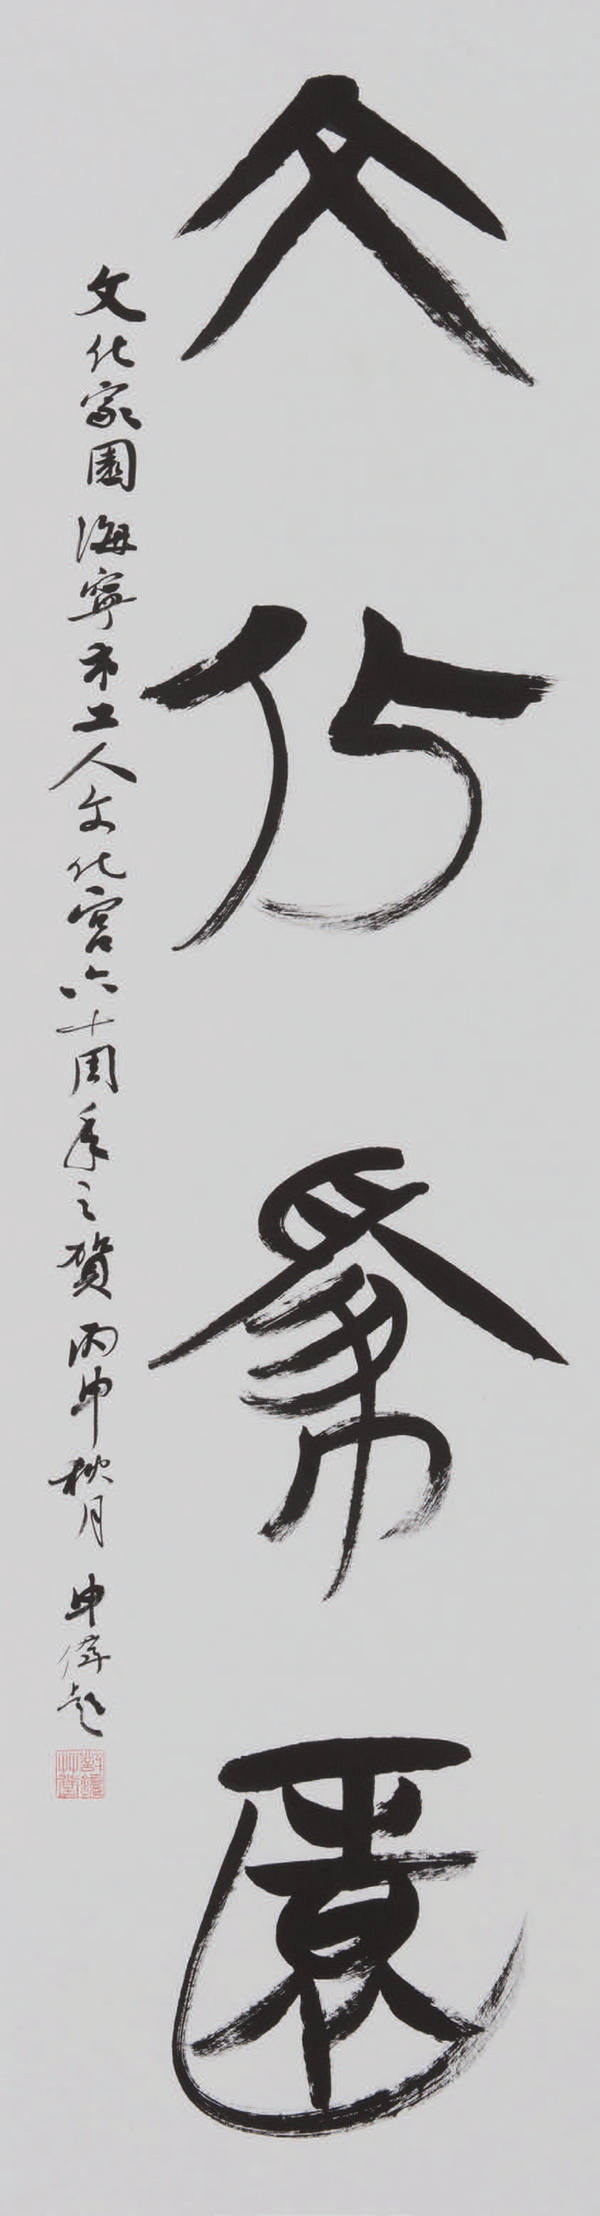 文化家園
文化家園 海寧市工人文化宮六十周年之賀 丙申秋月 申偉題